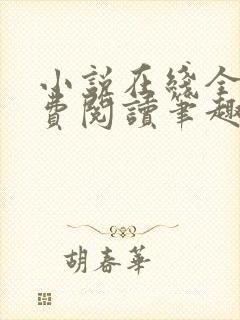 小説在綫全
費閱讀筆趣
胡春華